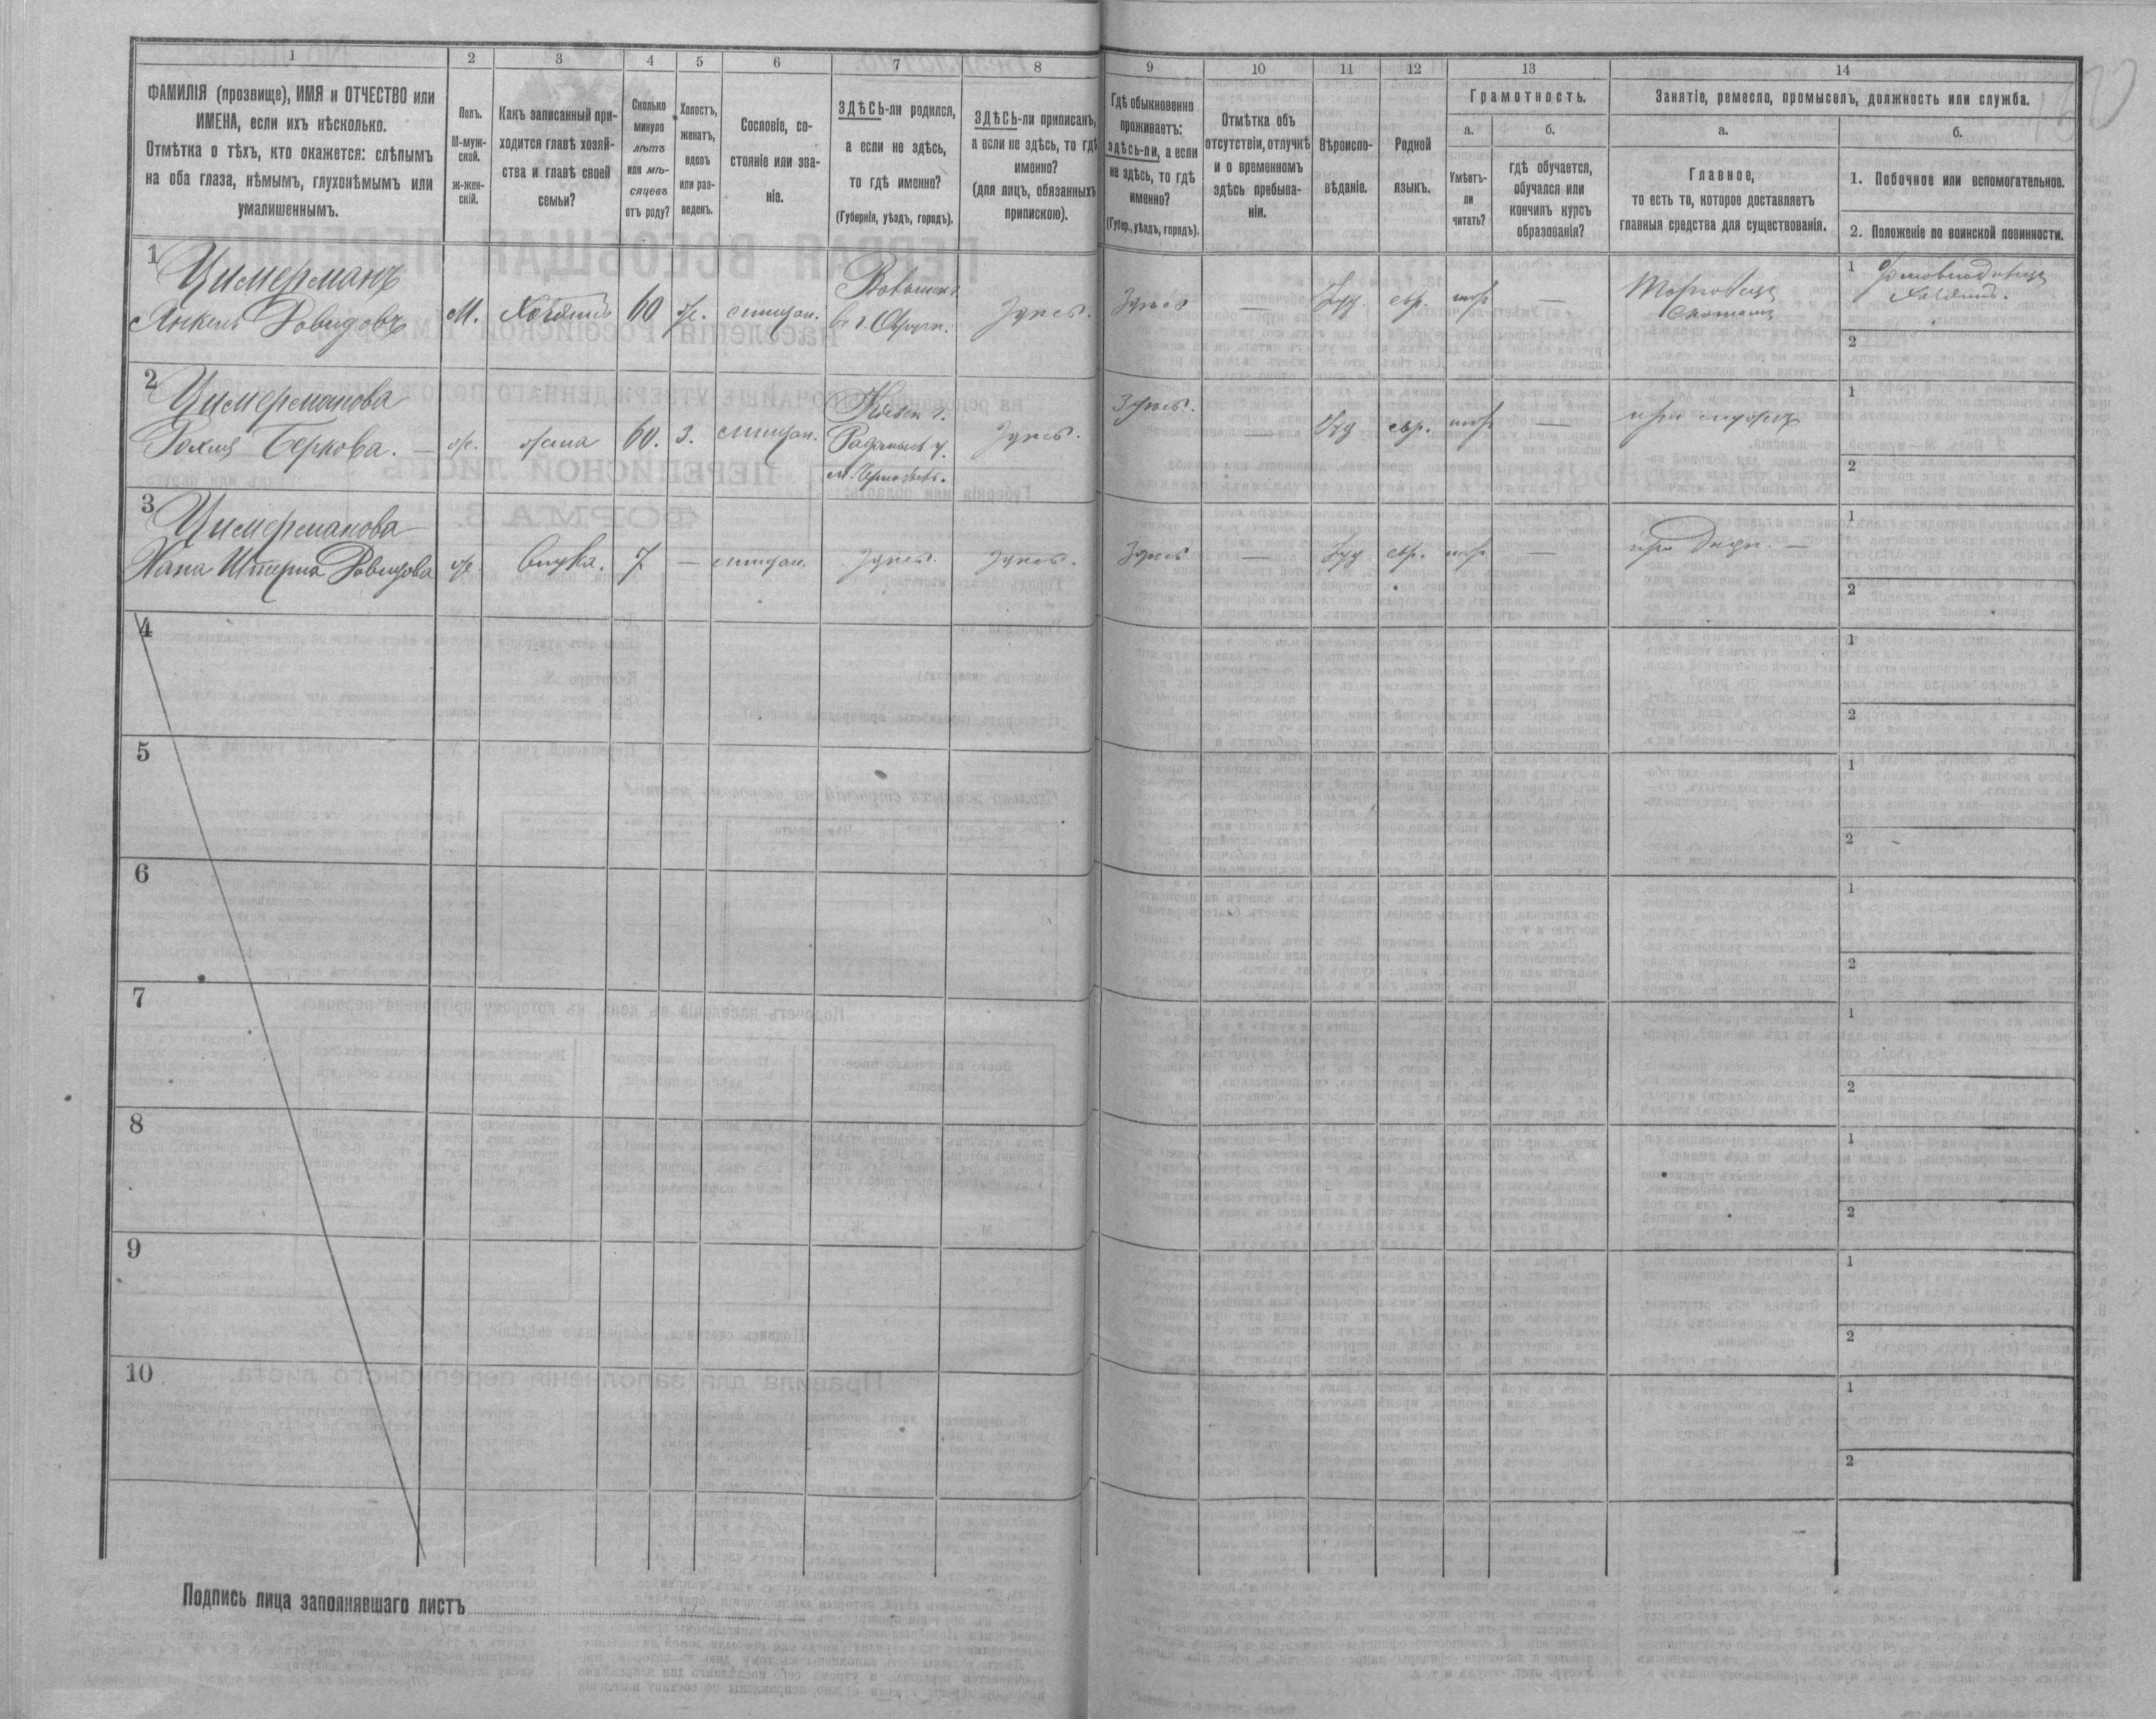 1
2
3
4
5
6
7
8
9
10
11
12
13
14
ФАМИЛІЯ (прозвище), ИМЯ и ОТЧЕСТВО или
ИМЕНА, если ихъ нѣсколько.
Отмѣтка о тѣхъ, кто окажется: слѣпымъ
на оба глаза, нѣмымъ, глухонѣмымъ или
умалишеннымъ.
Полъ.
М-муж-
ской.
ж-жен-
скій.
Какъ записанный при-
ходится главѣ хозяй-
ства и главѣ своей
семьи?
Сколько
минуло
лѣтъ
или мѣ-
сяцевъ
отъ роду?
Холостъ,
женатъ,
вдовъ
или раз-
веденъ.
Сословіе, со-
стояніе или зва-
ніе.
ЗДѢСЬ-ли родился,
а если не здѣсь,
то гдѣ именно?
(Губернія, уѣздъ, городъ).
ЗДѢСЬ-ли приписанъ,
а если не здѣсь, то гдѣ
именно?
(для лицъ, обязанныхъ
припискою).
Гдѣ обыкновенно
проживаетъ:
здѣсь-ли, а если
не здѣсь, то гдѣ
именно?
(Губер., уѣздъ, городъ).
Отмѣтка объ
отсутствіи, отлучкѣ
и о временномъ
здѣсь пребыва-
ніи.
Вѣроиспо-
вѣданіе.
Родной
языкъ.
Грамотность.
а.
Умѣетъ-
ли
читать?
б.
гдѣ обучается,
обучался или
кончилъ курсъ
образованія?
Занятіе, ремесло, промыселъ, должность или служба.
а.
Главное,
то есть то, которое доставляетъ
главныя средства для существованія.
б.
1. Побочное или вспомогательное.
2. Положеніе по воинской повинности.
1
Цимерманъ
Янкель Довидовъ
М.
Хозяинъ
60
ж.
мищан.
Волынск. г.
Овруч.
Здѣсь.
Здѣсь
—
Іуд.
евр.
—
1
Хозяинъ.
2
2
Цимерманова
Рохля Беркова.
ж.
жена
60.
З.
мищан.
Кіевск. г.
Радомысл. у.
Здѣсь.
Здѣсь.
—
Іуд
евр.
—
при мужѣ
1
2
3
Цимерманова
Хана Штерна Довидова
ж.
внучка.
7
—
мищан.
Здѣсь.
Здѣсь.
Здѣсь
—
Іуд
евр.
—
при дѣдѣ. —
1
2
4
1
2
5
1
2
6
1
2
7
1
2
8
1
2
9
1
2
10
1
2
Подпись лица заполнявшаго листъ